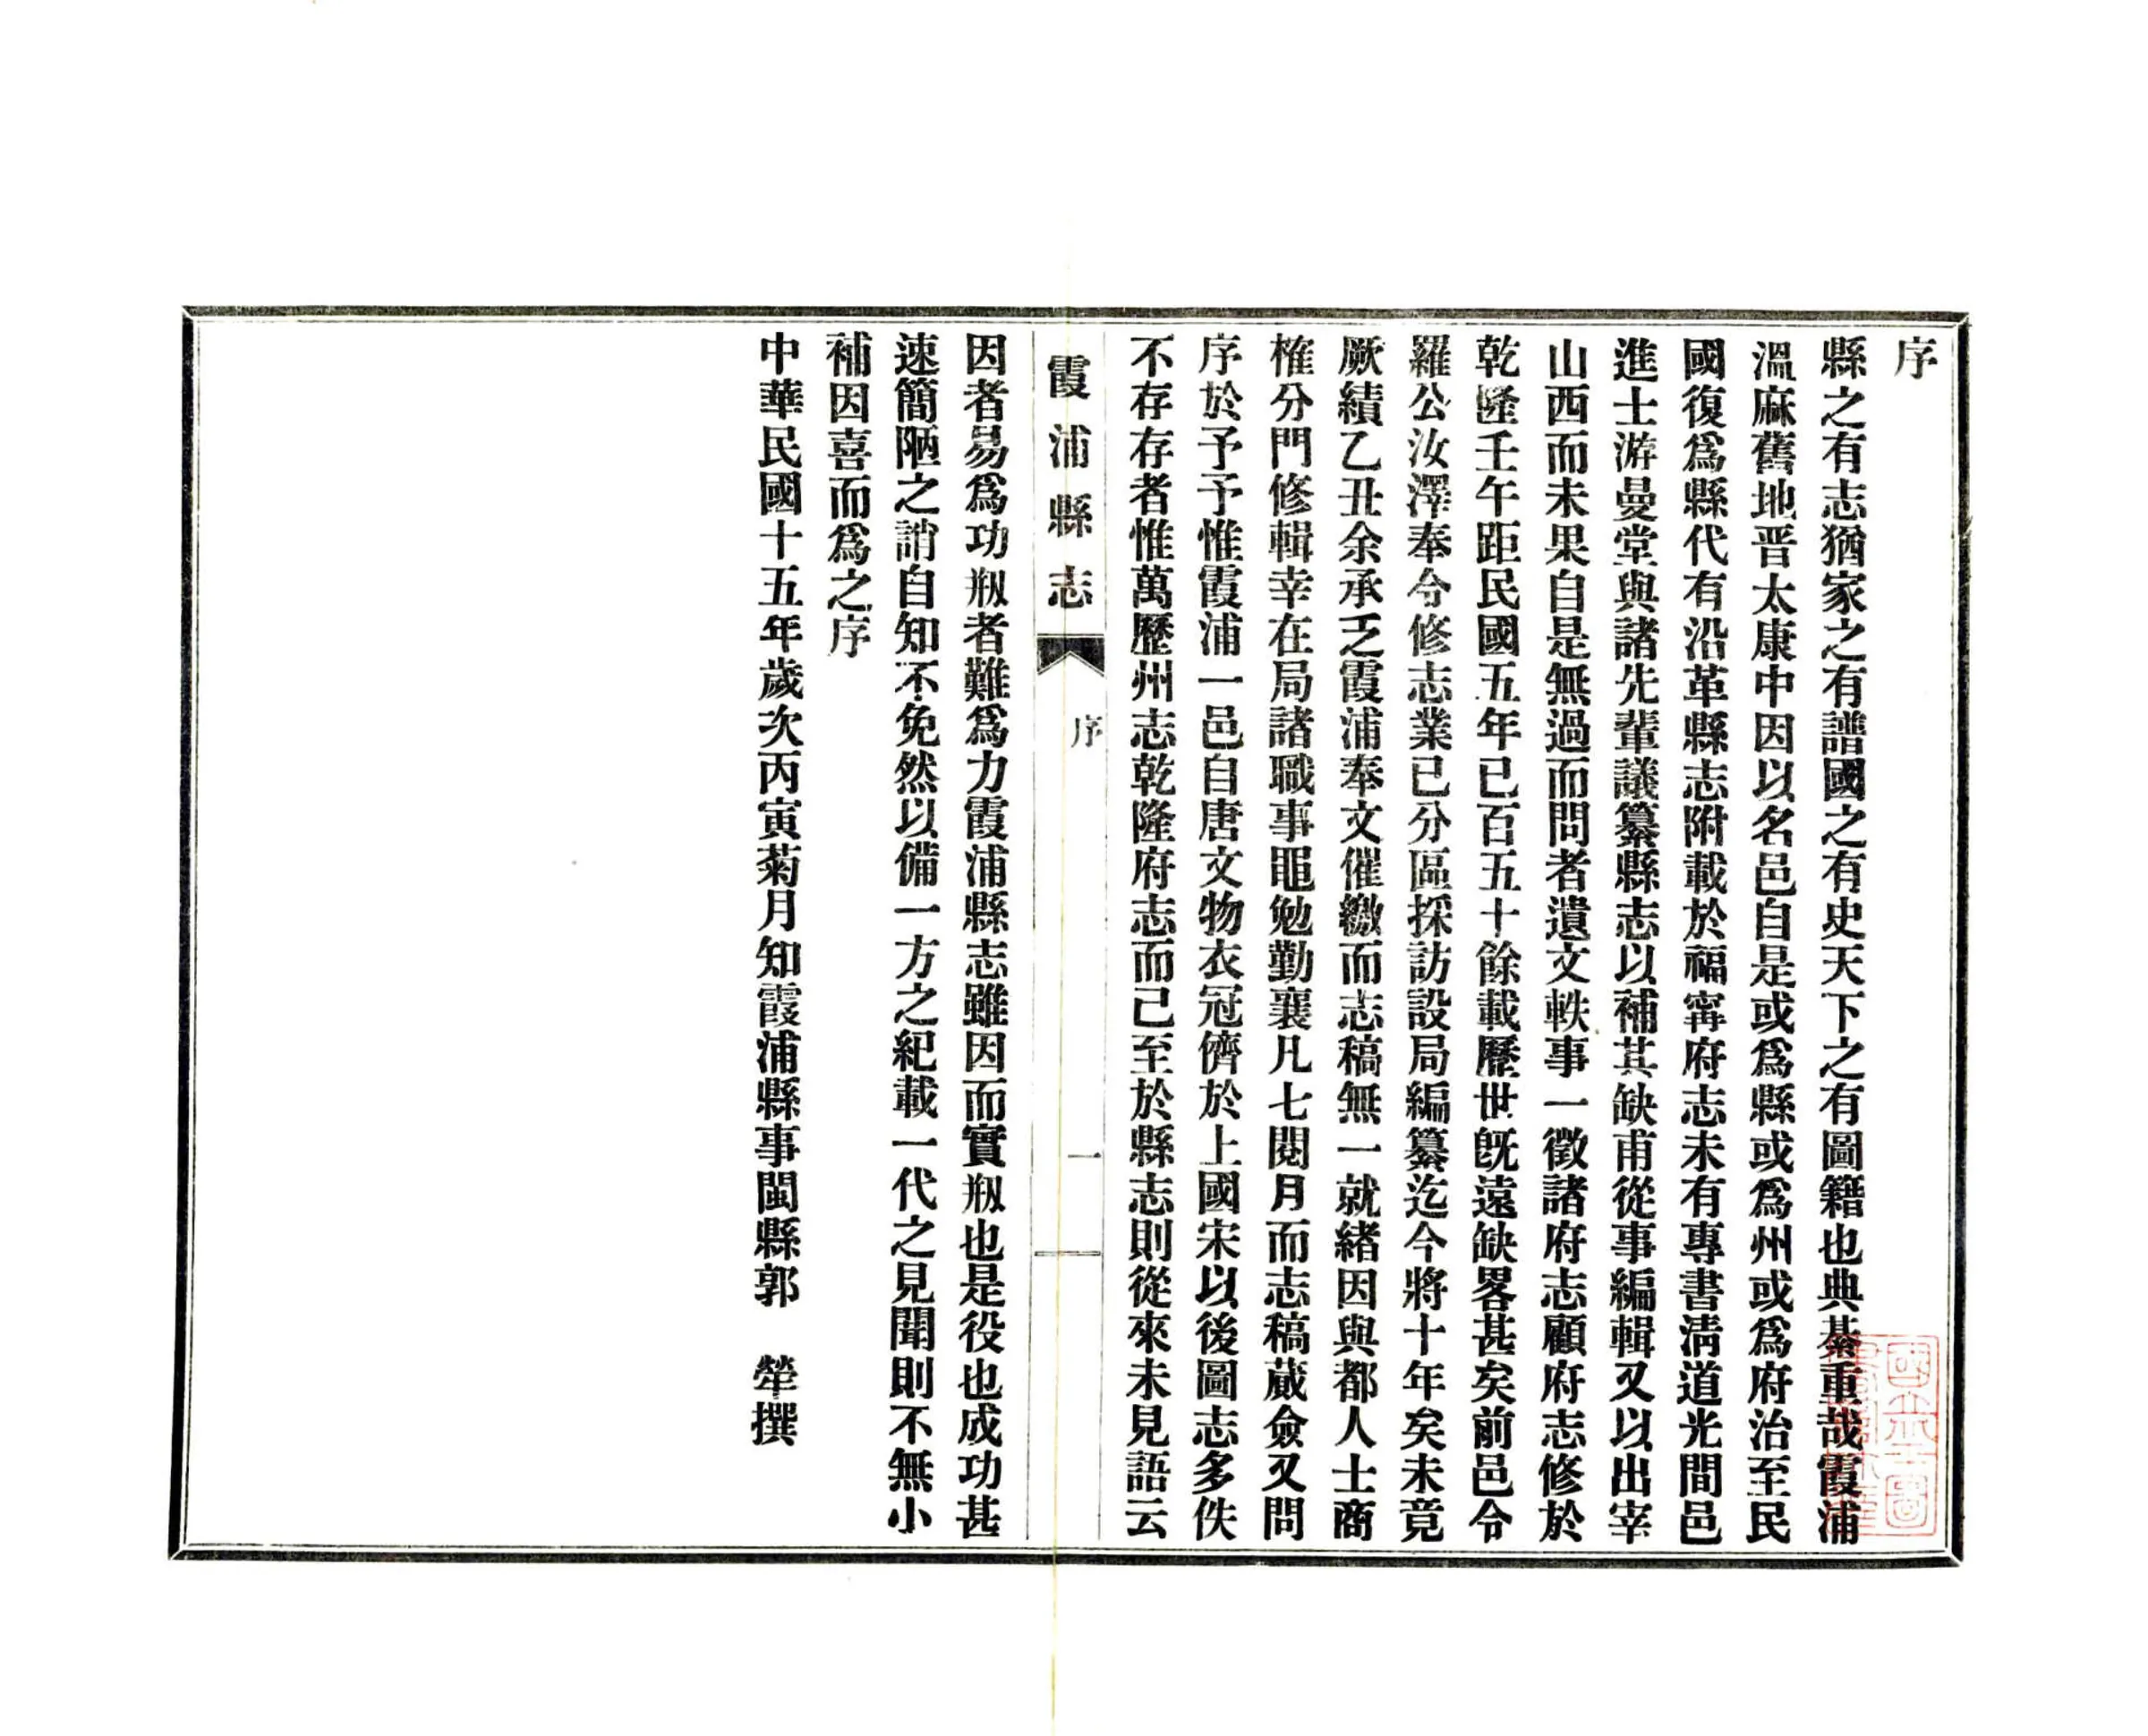 序
縣之有志猶家之有譜國之有史天下之有圖籍也典綦重哉霞浦
溫麻舊地晋太康中因以名邑自是或爲縣或爲州或爲府治至民
國復爲縣代有沿革縣志附載於福寗府志未有專書淸道光間邑
進士游曼堂與諸先輩議纂縣志以補其缺甫從事編輯又以出宰
山西而未果自是無過而問者遺文軼事一徵諸府志顧府志修於
乾隆壬午距民國五年已百五十餘載歷世旣遠缺畧甚矣前邑令
羅公汝澤奉令修志業已分區採訪設局編纂迄今將十年矣未竟
厥績乙丑余承乏霞浦奉文催繳而志稿無一就緖因與都人士商
榷分門修輯幸在局諸職事黽勉勤襄凡七閱月而志稿蕆僉又問
序於予予惟霞浦一邑自唐文物衣冠儕於上國宋以後圖志多佚
不存存者惟萬歷州志乾隆府志而己至於縣志則從來未見語云
霞浦縣志
序
一
因者易爲功剏者難爲力霞浦縣志雖因而實剏也是役也成功甚
速簡陋之誚自知不免然以備一方之紀載一代之見聞則不無小
補因喜而爲之序
中華民國十五年歲次丙寅菊月知霞浦縣事閩縣郭 犖撰